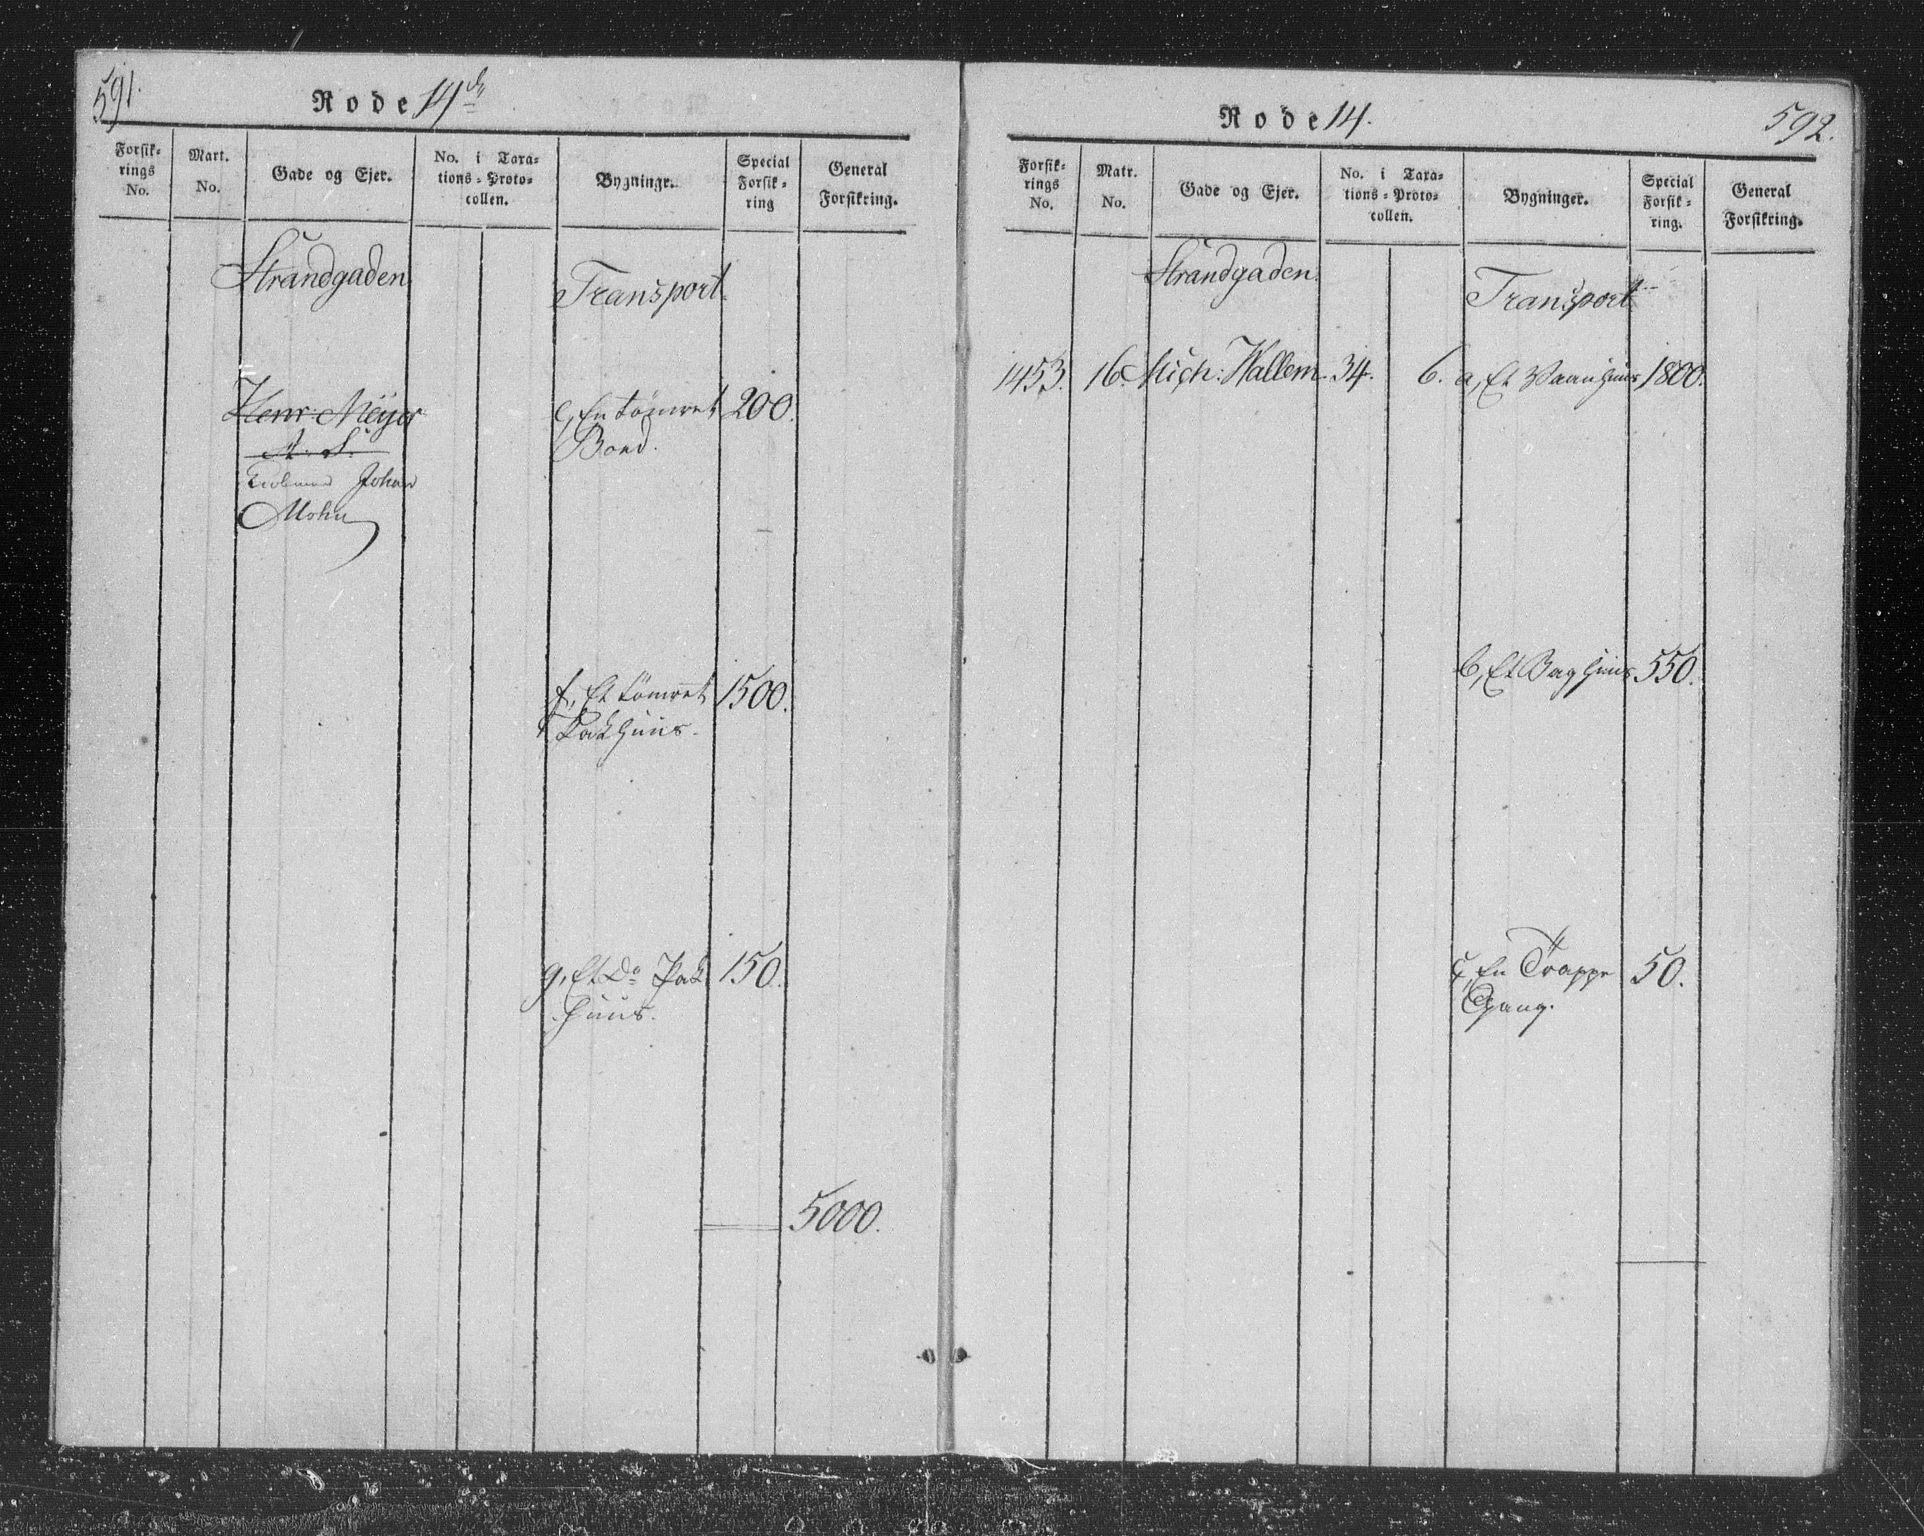 591.
Rode 14de
Forsik-
rings
No.
Mart.
No.
Gade og Ejer.
No. i Taxa-
tions-Proto-
collen.
Bygningr.
Special
Forsik-
ring
General
Forsikring.
Strandgaden
Transport
Henr Meyer
A. S.
Johan
Mohn
e, En tömret 200.
Boed.
f, Et tömret 1500.
Pakhuus.
g, Et Do Pak 150.
huus.
5000.
Rode 14.
592.
Forsik-
rings
No.
Matr.
No.
Gade og Ejer.
No. i Taxa-
tions-Proto-
collen.
Bygninger.
Special
Forsik-
ring.
General
Forsikring.
Strandgaden.
Transport
1453. 16. Mich: Wallem. 34. 6. a, Et Vaanhuus 1800.
b, Et Baghuus 550.
c, En Trappe 50.
Gang.